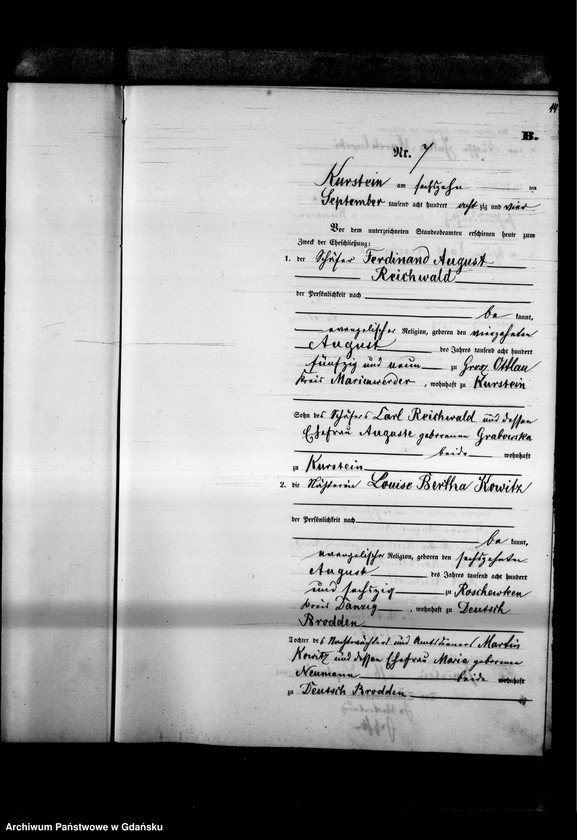 44
B.
Nr. 7
Kurstein am sechszehn ten
September tausend acht hundert acht zig und vier
Vor dem unterzeichneten Standesbeamten erschienen heute zum
Zweck der Eheschließung:
1. der Schäfer Ferdinand August
Reichwald
der Persönlichkeit nach
be kannt,
evangelischer Religion, geboren den vierzehnten
August des Jahres tausend acht hundert
fünfzig und neun zu Gross Ottlau
Kreis Marienwerder, wohnhaft zu Kurstein
Sohn des Schäfers Carl Reichwald und dessen
Ehefrau Auguste geborenen Grabowska
beide wohnhaft
zu Kurstein
2. die Louise Bertha Kowitz
der Persönlichkeit nach
be kannt,
evangelischer Religion, geboren den sechszehnten
August des Jahres tausend acht hundert
und sechszig zu Roschewken
Kreis Danzig, wohnhaft zu Deutsch
Brodden
Tochter des Nachtwächters und Amtsdieners Martin
Kowitz und dessen Ehefrau Maria geborenen
Neumann beide wohnhaft
zu Deutsch Brodden
Archiwum Państwowe w Gdańsku